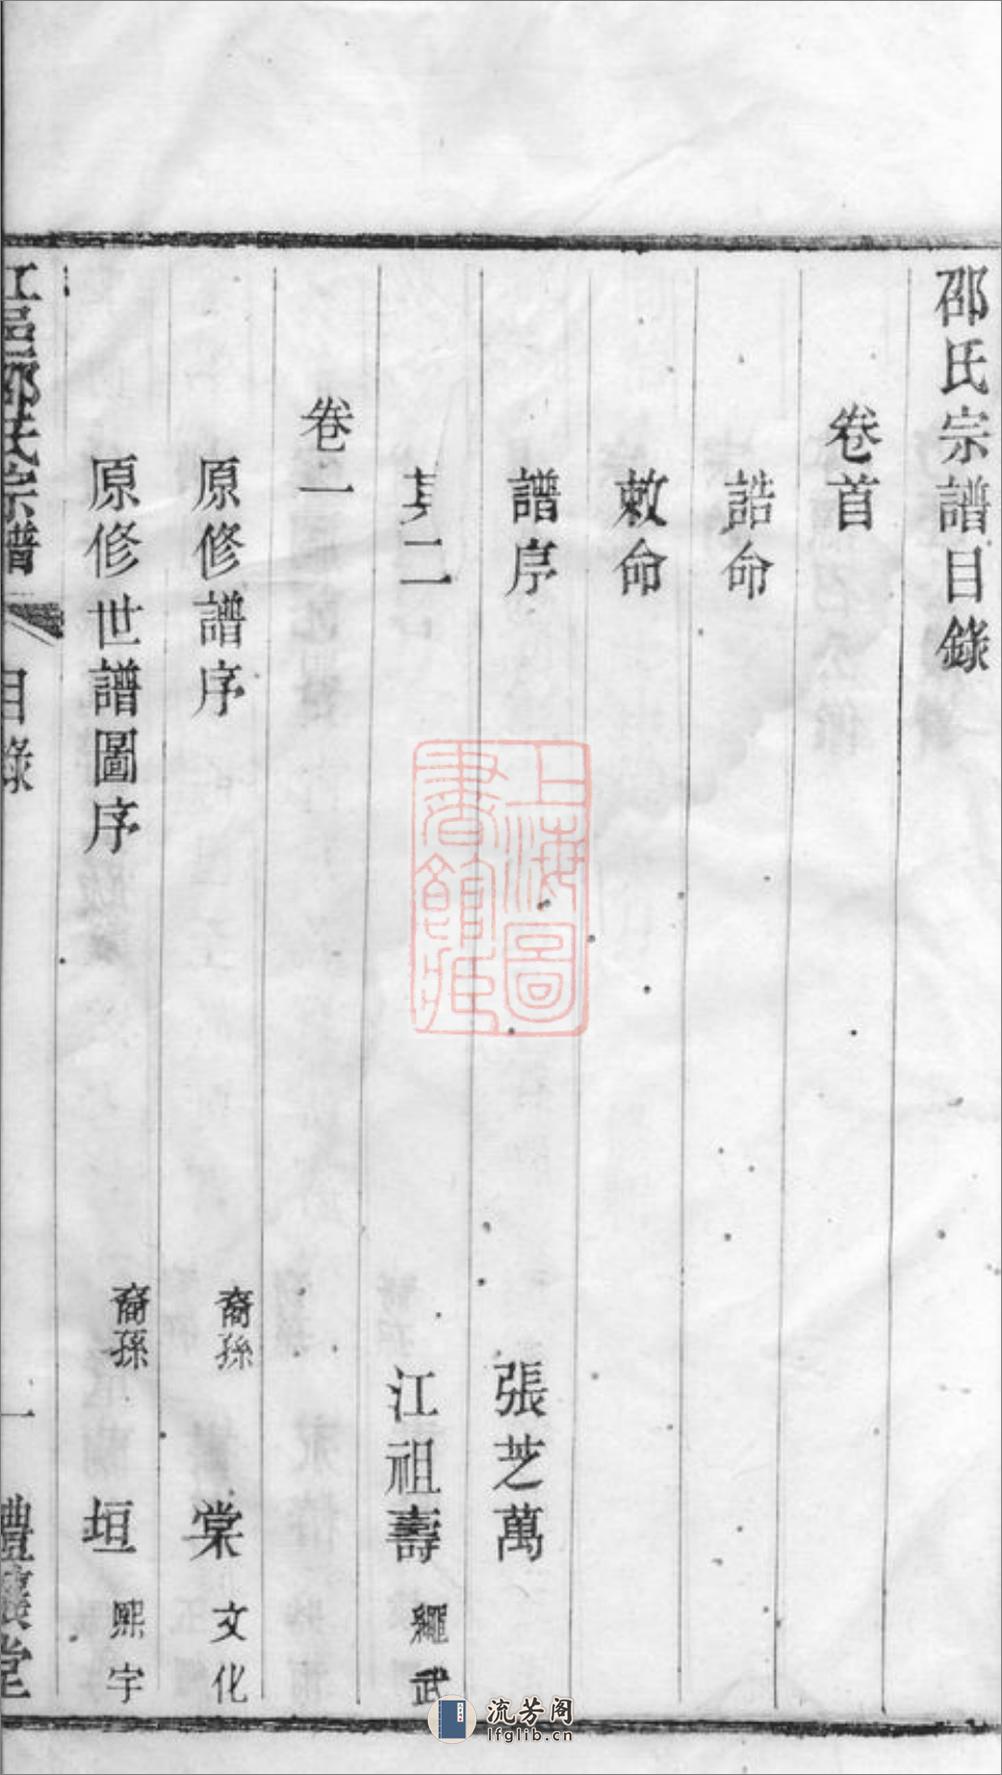 邵氏宗譜目錄
卷首
誥命
敕命
譜序 張芝萬
其二 江祖壽 繩武
卷一
原修譜序 裔孫 棠 文化
原修世譜圖序 裔孫 垣 熙宇
江邑邵氏宗譜 目錄 一 禮讓堂
上海圖書館藏
流芳阁
lfglib.cn